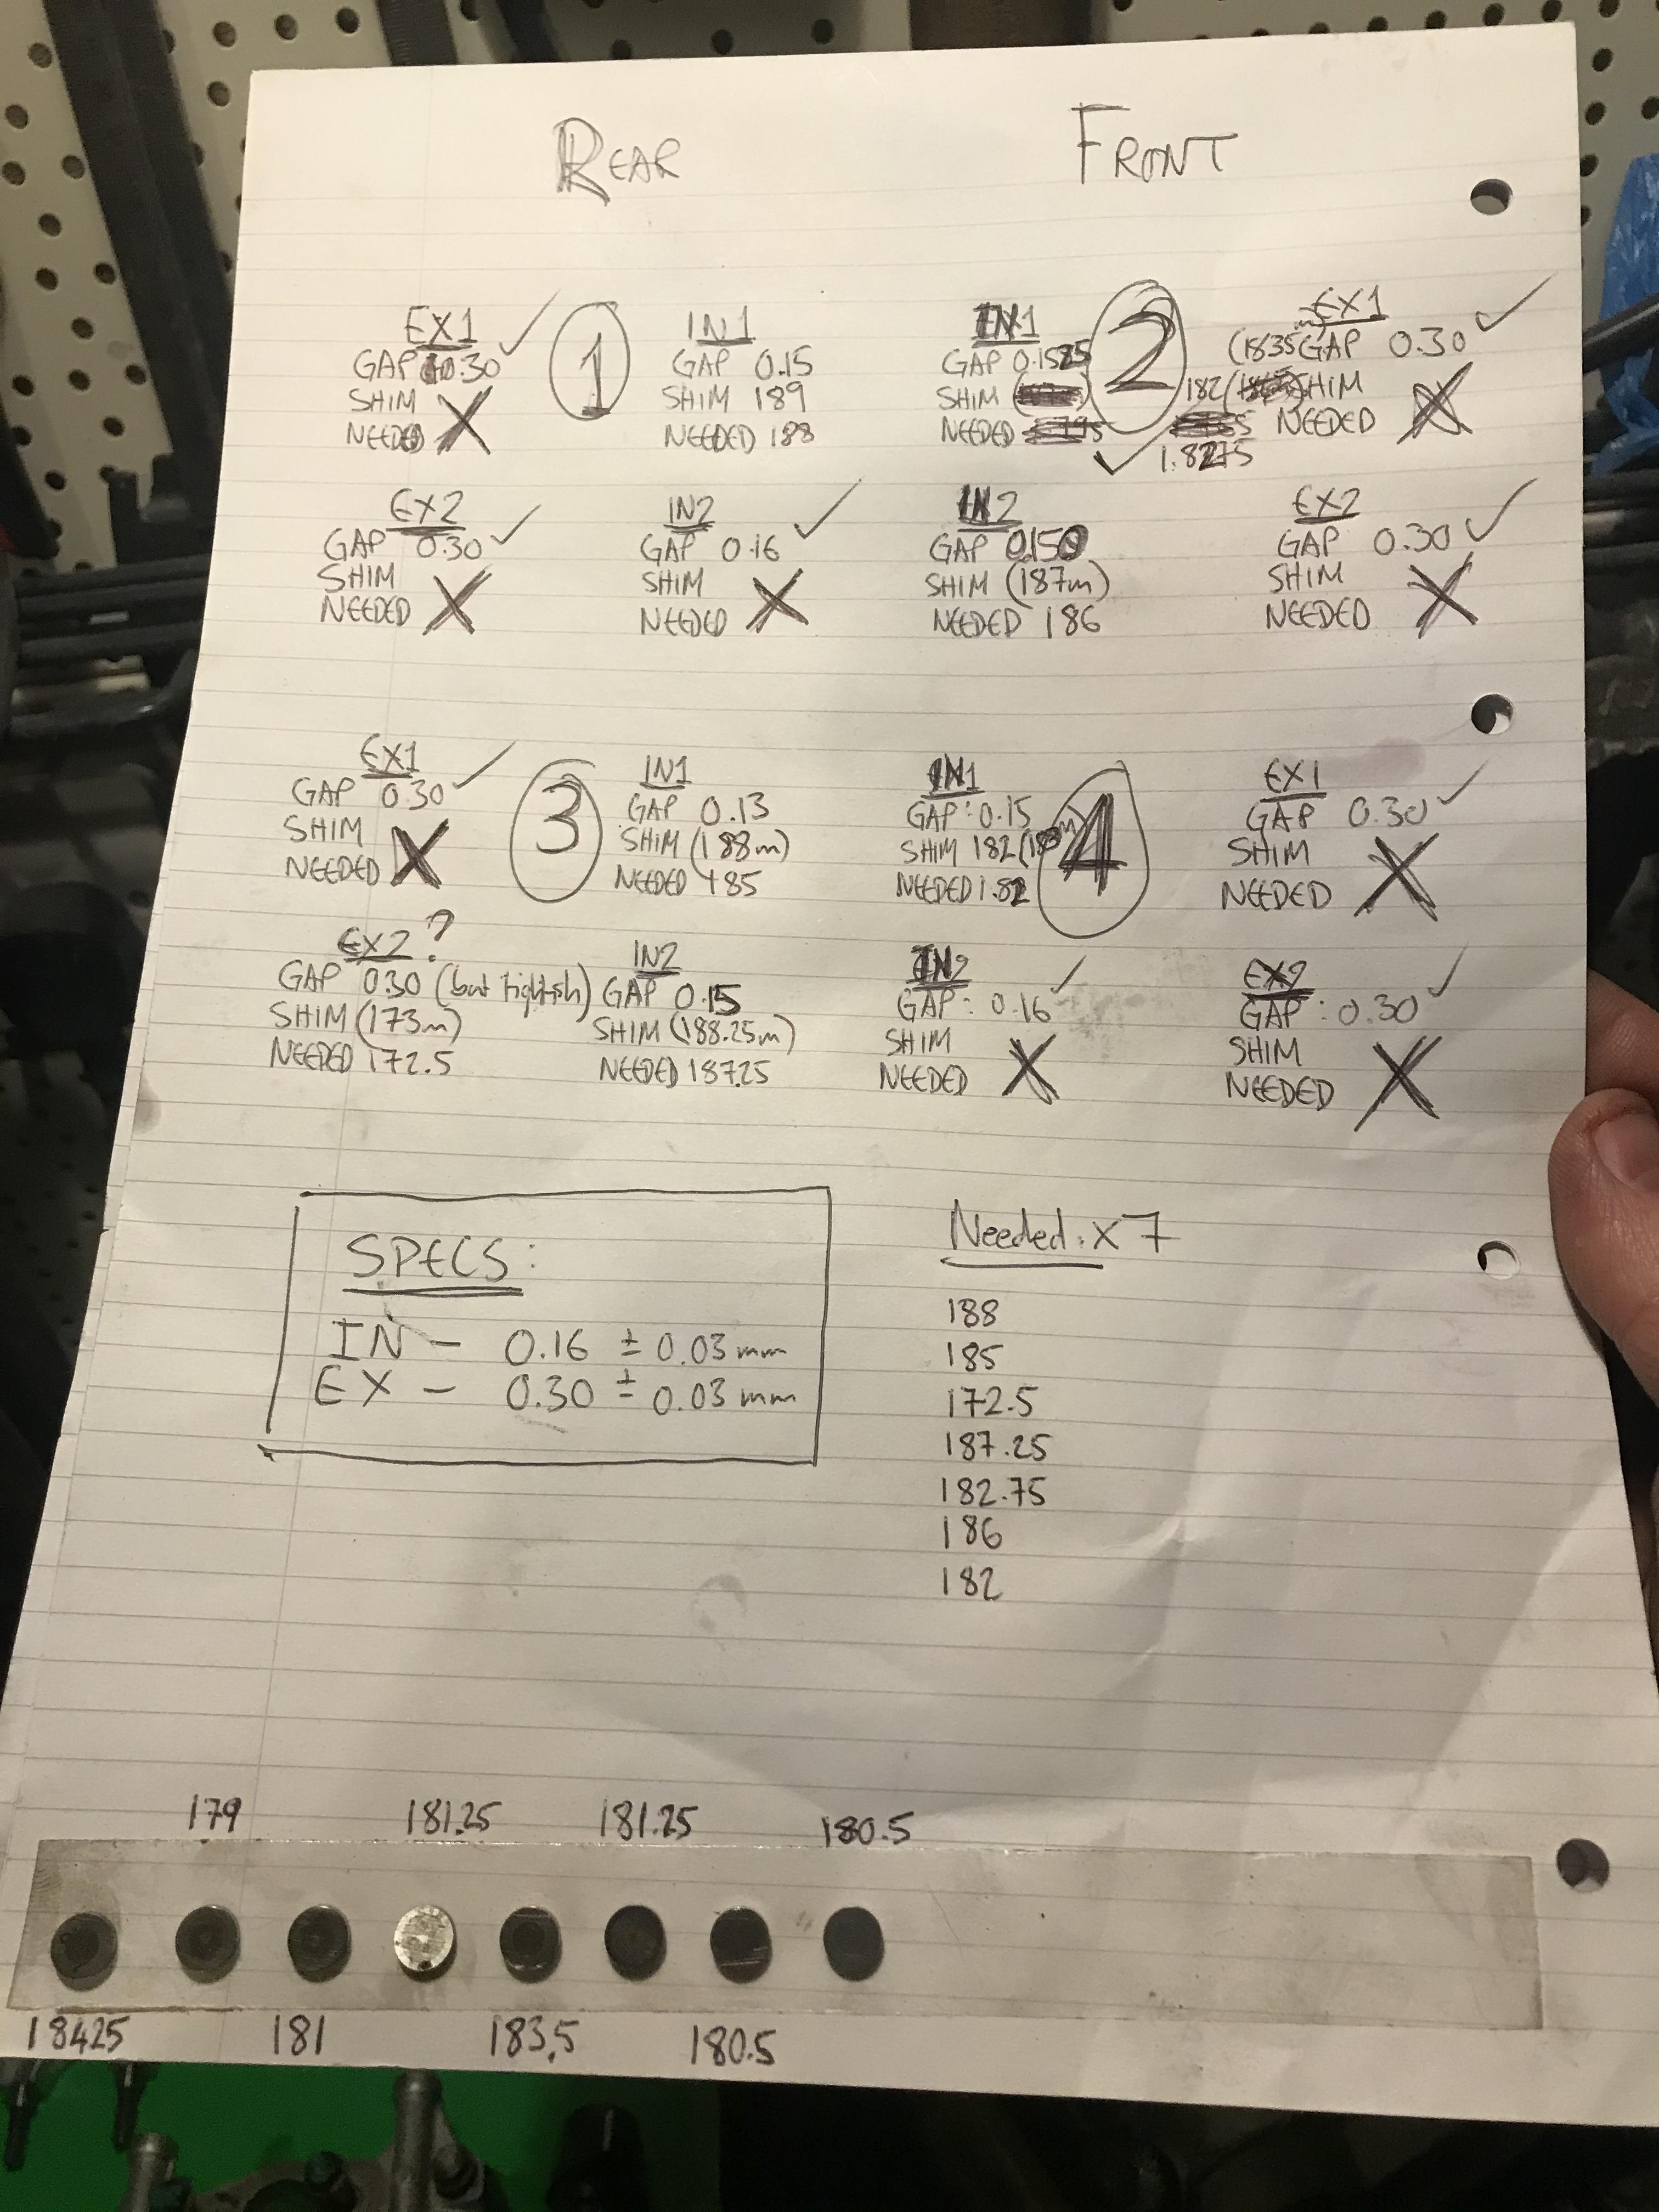 REAR
FRONT
EX1 ✓
GAP 0.30
SHIM X
NEEDED
1
IN1
GAP 0.15
SHIM 189
NEEDED 188
IN1
GAP
SHIM
NEEDED
2
EX1 ✓
(183.5m) GAP 0.30
182 SHIM
NEEDED X
✓ 1.8275
EX2 ✓
GAP 0.30
SHIM X
NEEDED
IN2 ✓
GAP 0.16
SHIM X
NEEDED
IN2
GAP 0.150
SHIM (187m)
NEEDED 186
EX2 ✓
GAP 0.30
SHIM X
NEEDED
EX1 ✓
GAP 0.30
SHIM X
NEEDED
3
IN1
GAP 0.13
SHIM (188m)
NEEDED 185
IN1
GAP: 0.15
SHIM 182
NEEDED 1.82
4
EX1 ✓
GAP 0.30
SHIM X
NEEDED
EX2 ?
GAP 0.30 (but tightish)
SHIM (173m)
NEEDED 172.5
IN2
GAP 0.15
SHIM (188.25m)
NEEDED 187.25
IN2 ✓
GAP: 0.16
SHIM X
NEEDED
EX2 ✓
GAP: 0.30
SHIM X
NEEDED
SPECS:
IN - 0.16 ± 0.03 mm
EX - 0.30 ± 0.03 mm
Needed: x 7
188
185
172.5
187.25
182.75
186
182
179 181.25 181.25 180.5
18425 181 183.5 180.5